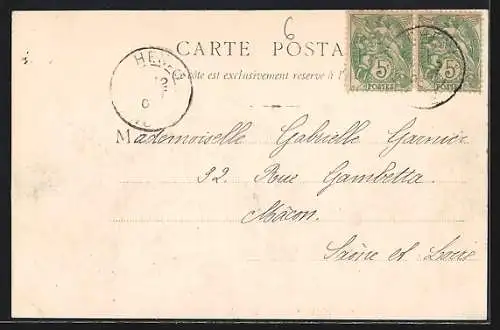 6
CARTE POSTA
Ce côté est exclusivement réservé à l'
5c 5c
POSTES POSTES
Mademoiselle Gabrielle Garnier
92. Rue Gambetta.
Mâcon.
Saône et Loire